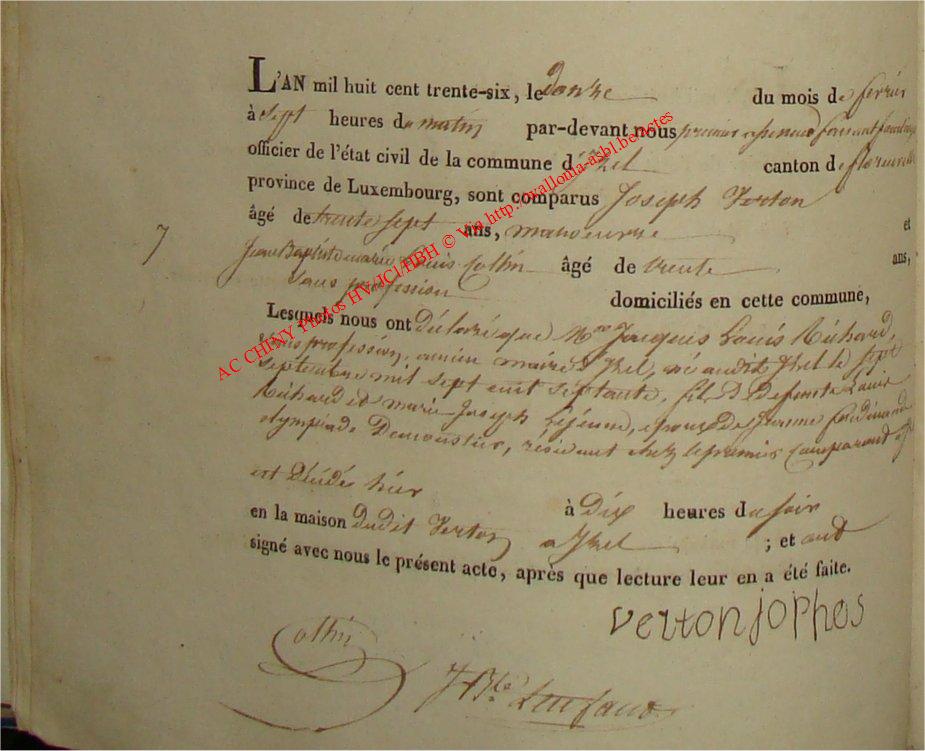 L'AN mil huit cent trente-six, le douze du mois de février
à sept heures du matin par-devant nous premier
officier de l'état civil de la commune d'Izel canton de florenville
province de Luxembourg, sont comparus Joseph Verton
âgé de trente sept ans, manoeuvre et
7
Jean Baptiste marie Louis Collin âgé de trente ans,
sans profession domiciliés en cette commune,
Lesquels nous ont déclaré que Mre Jacques Louis Richard,
sans profession, ancien maire d'Izel, né audit Izel le sept
septembre mil sept cent septante, fils de defunts Louis
Richard et marie Joseph Lejeune, epoux de Jeanne ferdinande
olympiade Demoustier, résidant chez le premier comparant
est décédé hier à dix heures du soir
en la maison dudit Verton à Izel ; et ont
signé avec nous le présent acte, après que lecture leur en a été faite.
verton jophes
Collin
JBte
AC CHINY Photos HV JCl/HBH © Via http://wallonia-asbl.be/actes